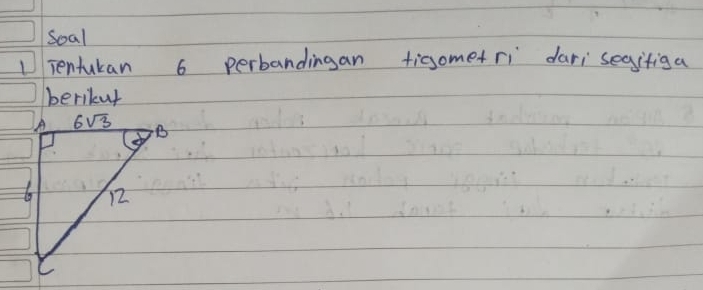 Soal
1 Tentukan 6 perbandingan tigometri dari segitiga
berikut
A 6√3 B
α
6 12
C